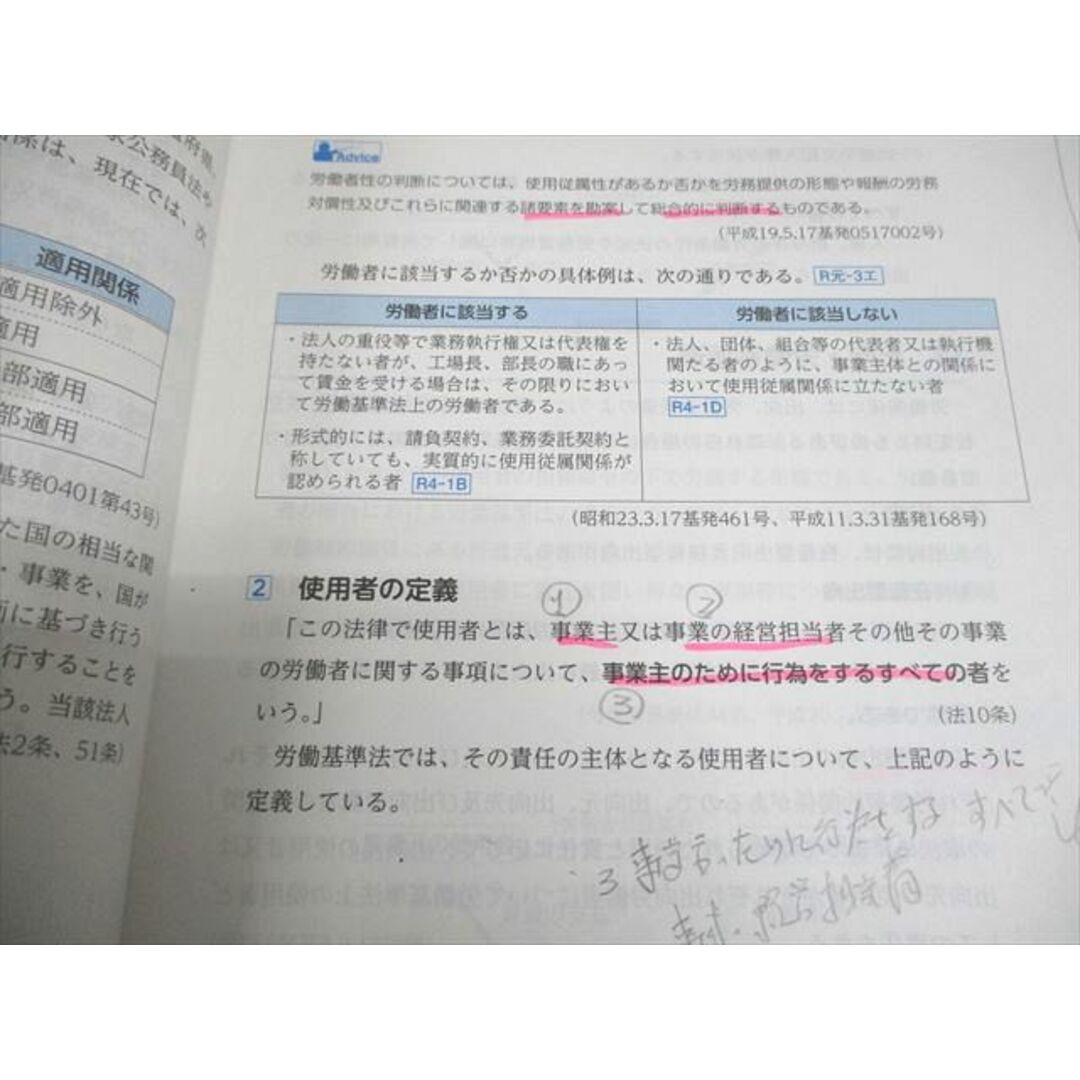 係は、現在では、次
適用関係
適用除外
適用
部適用
部適用
基発0401第43号)
た国の相当な関
・事業を、国が
に基づき行う
行することを
う。当該法人
法2条、51条)
Advice
労働者性の判断については、使用従属性があるか否かを労務提供の形態や報酬の労務
対償性及びこれらに関連する諸要素を勘案して総合的に判断するものである。
(平成19.5.17基発0517002号)
労働者に該当するか否かの具体例は、次の通りである。 R元-3エ
労働者に該当する
・法人の重役等で業務執行権又は代表権を
持たない者が、工場長、部長の職にあっ
て賃金を受ける場合は、その限りにおい
て労働基準法上の労働者である。
・形式的には、請負契約、業務委託契約と
称していても、実質的に使用従属関係が
認められる者 R4-1B
労働者に該当しない
・法人、団体、組合等の代表者又は執行機
関たる者のように、事業主体との関係に
おいて使用従属関係に立たない者
R4-1D
(昭和23.3.17基発461号、平成11.3.31基発168号)
2 使用者の定義
① ②
「この法律で使用者とは、事業主又は事業の経営担当者その他その事業
の労働者に関する事項について、事業主のために行為をするすべての者を
いう。」
③
(法10条)
労働基準法では、その責任の主体となる使用者について、上記のように
定義している。
3
ために行為をする すべて